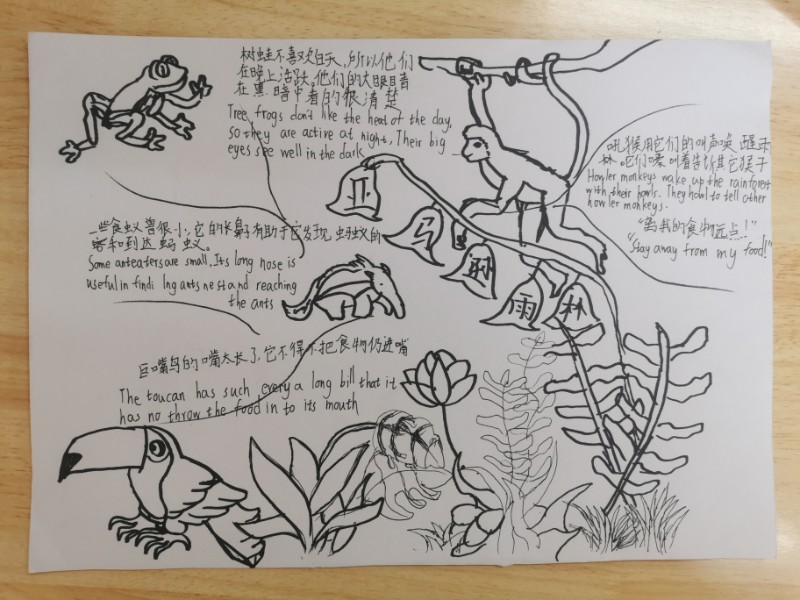 树蛙不喜欢白天,所以他们
在晚上活跃,他们的大眼目青
在黑暗中看的很清楚
Tree frogs don't like the heat of the day,
so they are active at night, Their big
eyes see well in the dark
吼猴用它们的叫声唤醒雨
林它们嚎叫着告诉其它猴子
Howler monkeys wake up the rainforest
with their howls. They howl to tell other
howler monkeys.
"离我的食物远点!"
"Stay away from my food!"
亚
马
孙
雨
林
一些食蚁兽很小,它的长鼻有助于它发现蚂蚁的
窝和到达蚂蚁。
Some anteaters are small. Its long nose is
useful in findi Ing ants nest and reaching
the ants
巨嘴鸟的嘴太长了,它不得不把食物仍进嘴
The toucan has such every a long bill that it
has no throw the food in to its mouth